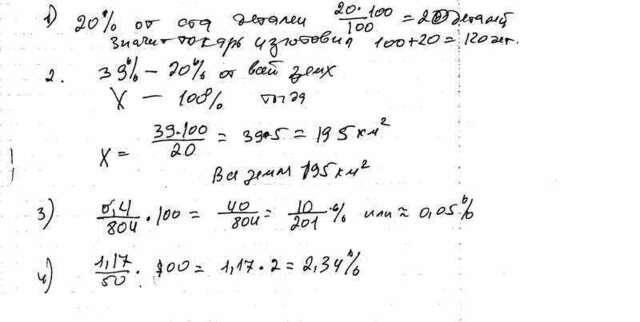 1) 20% от ста деталей 20·100/100 = 20 деталей
Значит токарь изготовил 100+20=120 дет.
2. 39% — 20% от всей земл
X — 100%
X = 39·100/20 = 39·5 = 195 км²
Вся земля 195 км²
3) 0,4/804 · 100 = 40/804 = 10/201 % или ≈ 0,05%
4) 1,17/50 · 100 = 1,17·2 = 2,34%